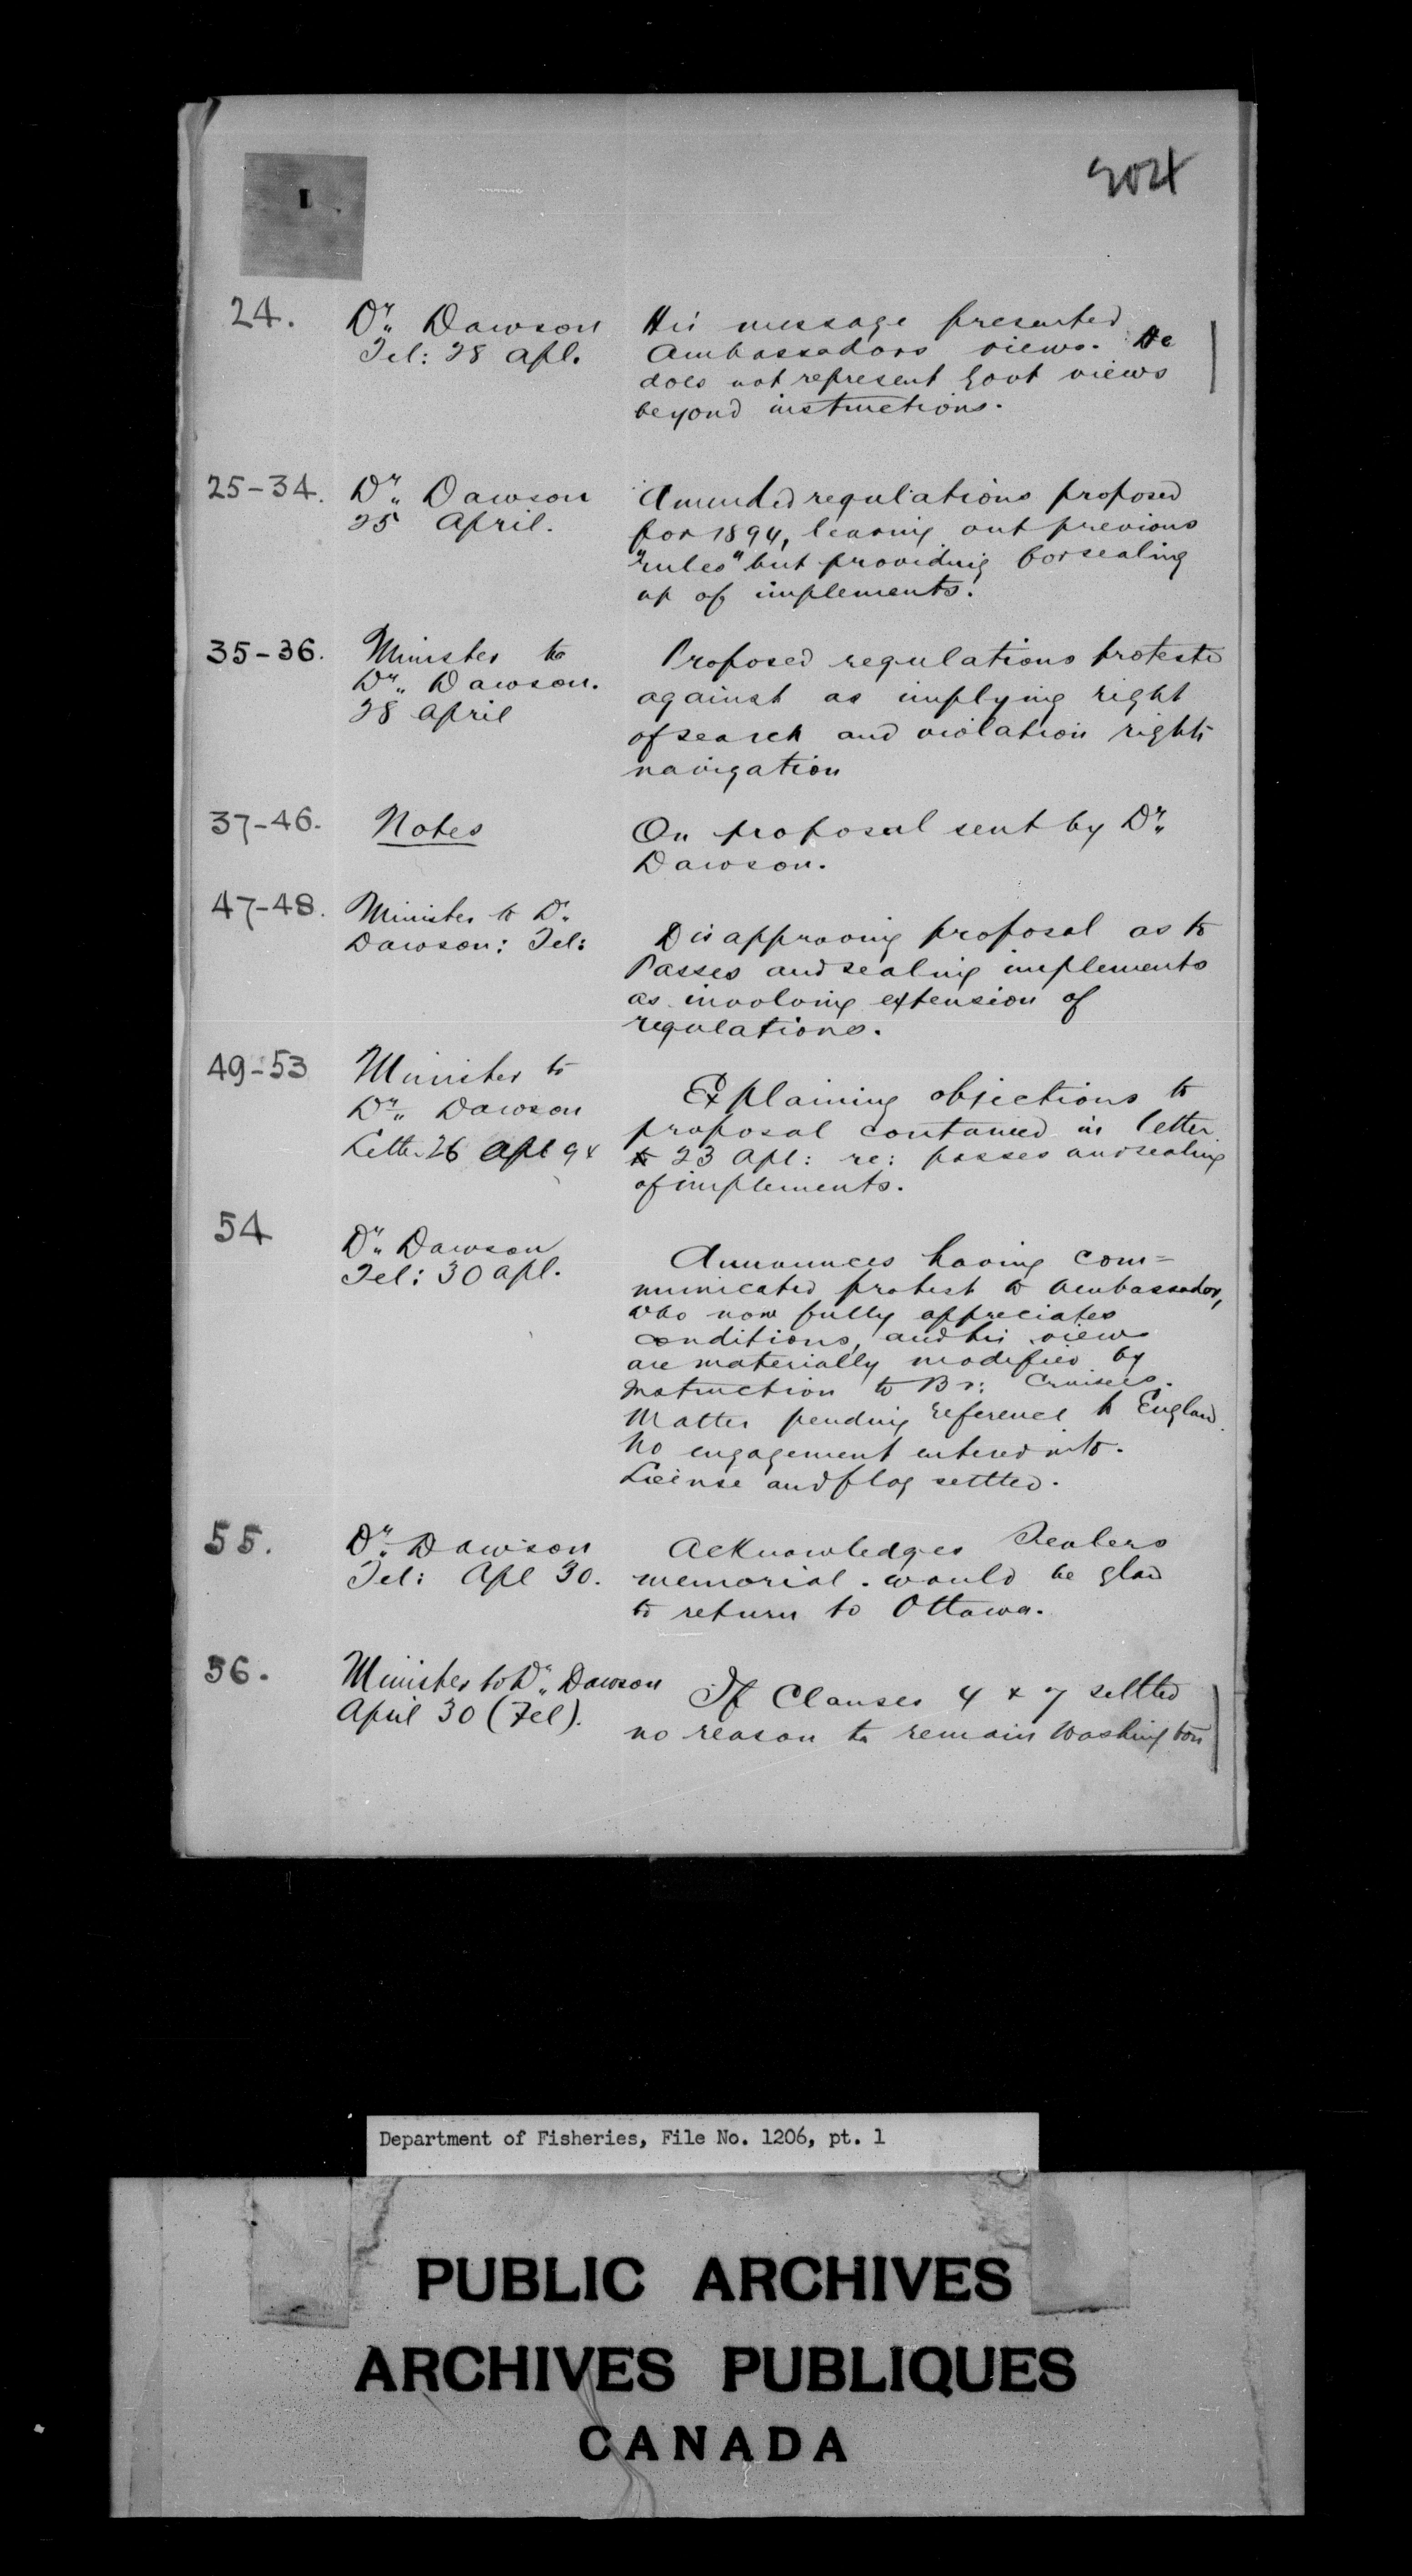 304
24.
Dr. Dawson
Tel: 28 Apl.
His message presented
Ambassadors views. He
does not represent Govt views
beyond instructions.
25-34.
Dr. Dawson
25 April.
Amended regulations proposed
for 1894, leaving out previous
"rules" but providing for sealing
up of implements.
35-36.
Minister to
Dr. Dawson.
28 April
Proposed regulations protested
against as implying right
of search and violation rights
navigation
37-46.
Notes
On proposal sent by Dr.
Dawson.
47-48.
Minister to Dr.
Dawson: Tel:
Disapproving proposal as to
Passes and sealing implements
as involving extension of
regulations.
49-53
Minister to
Dr. Dawson
Letter 26 Apl 94
Explaining objections to
proposal contained in letter
23 Apl: re: passes and sealing
of implements.
54
Dr. Dawson
Tel: 30 Apl.
Announces having com=
municated protest to Ambassador,
who now fully appreciates
conditions, and his views
are materially modified by
instruction to Br: Cruisers.
Matter pending reference to England.
No engagement entered into.
License and flag settled.
55.
Dr. Dawson
Tel: Apl 30.
Acknowledges Sealers
memorial. would be glad
to return to Ottawa.
56.
Minister to Dr. Dawson
April 30 (Tel).
If Clauses 4 & 7 settled
no reason to remain Washington
Department of Fisheries, File No. 1206, pt. 1
PUBLIC ARCHIVES
ARCHIVES PUBLIQUES
CANADA